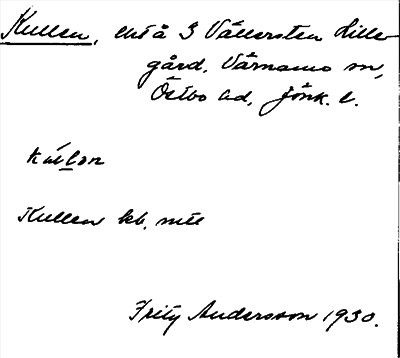 Kullen, ht å 3 Vällersten Lille-
gård, Värnamo sn,
Östbo hd, Jönk. l.
Kullen kb. ntt
Fritz Andersson 1930.